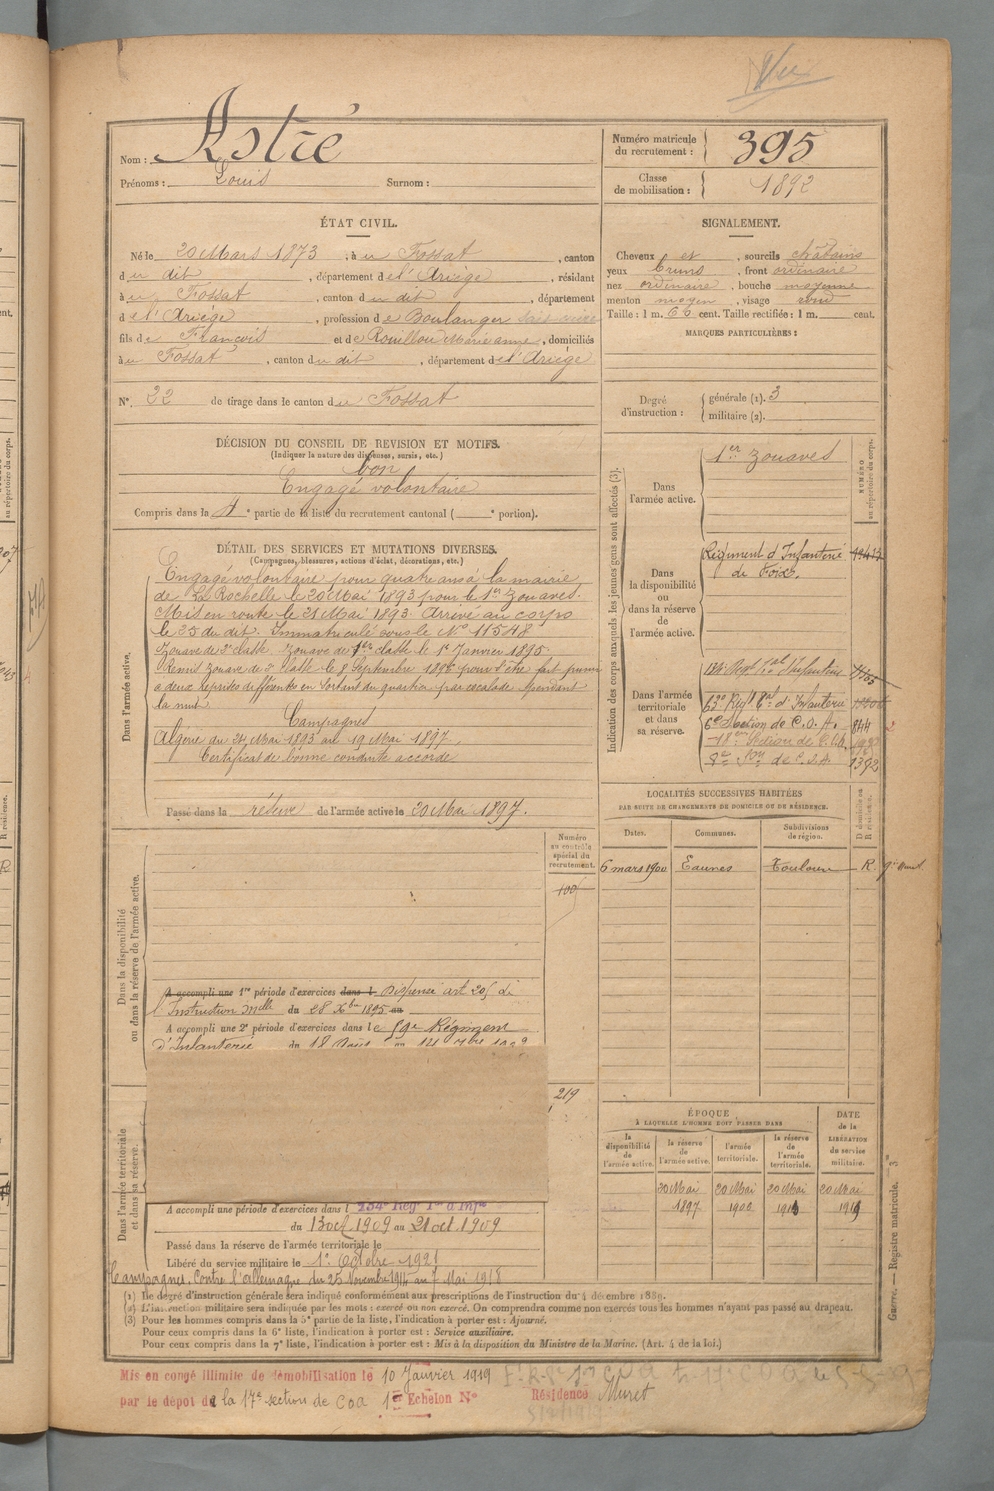 Vu
Nom : Astré
Prénoms : Louis Surnom :
Numéro matricule du recrutement : 395
Classe de mobilisation : 1892
ÉTAT CIVIL.
Né le 20 Mars 1873, à u Fossat, canton
d u dit, département d e l'Ariège, résidant
à u Fossat, canton d u dit, département
d e l'Ariège, profession d e Boulanger
fils d e François et d e Rouillou Marie anne, domiciliés
à u Fossat, canton d u dit, département d e l'Ariège
N° 22 de tirage dans le canton d u Fossat
SIGNALEMENT.
Cheveux et, sourcils châtains
yeux bruns, front ordinaire
nez ordinaire, bouche moyenne
menton moyen, visage rond
Taille : 1 m. 66 cent. Taille rectifiée : 1 m. cent.
MARQUES PARTICULIÈRES :
Degré d'instruction : générale (1). 3
militaire (2).
DÉCISION DU CONSEIL DE REVISION ET MOTIFS.
(Indiquer la nature des dispenses, sursis, etc.)
bon
Engagé volontaire
Compris dans la 4e partie de la liste du recrutement cantonal ( e portion).
DÉTAIL DES SERVICES ET MUTATIONS DIVERSES.
(Campagnes, blessures, actions d'éclat, décorations, etc.)
Dans l'armée active.
Engagé volontaire pour quatre ans à la mairie
de La Rochelle le 20 Mai 1893 pour le 1er Zouaves.
Mis en route le 21 Mai 1893. Arrivé au corps
le 25 du dit. Immatriculé sous le N° 11548
Zouave de 2e classe. Zouave de 1ère classe le 1er Janvier 1895.
Remis Zouave de 2e classe le 8 Septembre 1896 pour s'être fait punir
à deux reprises différentes en sortant du quartier par escalade pendant
la nuit
Campagnes
Algérie du 24 Mai 1893 au 19 Mai 1897.
Certificat de bonne conduite accordé
Passé dans la réserve de l'armée active le 20 Mai 1897.
Indication des corps auxquels les jeunes gens sont affectés (3).
NUMÉRO au répertoire du corps.
Dans l'armée active.
1er Zouaves
Dans la disponibilité ou dans la réserve de l'armée active.
Régiment d'Infanterie
de Foix.
Dans l'armée territoriale et dans sa réserve.
134e Regt Tal d'Infanterie
63e Regt Tal d'Infanterie
6e Section de C.O.A. 844
18e Section de C.O.A.
1392
LOCALITÉS SUCCESSIVES HABITÉES
PAR SUITE DE CHANGEMENTS DE DOMICILE OU DE RÉSIDENCE.
Dates. Communes. Subdivisions de région. D domicile ou R résidence.
6 mars 1900 Eaunes Toulouse R
Dans la disponibilité ou dans la réserve de l'armée active.
Numéro au contrôle spécial du recrutement.
100
A accompli une 1re période d'exercices dans l Dispensé art 205 de
l'Instruction Mlle du 28 Xbre 1895 au
A accompli une 2e période d'exercices dans l e 59e Régiment
d'Infanterie du 18 Août au
219
Dans l'armée territoriale et dans sa réserve.
A accompli une période d'exercices dans l 134e Reg. Tal d'Infie
du 13 oct. 1909 au 21 oct. 1909
Passé dans la réserve de l'armée territoriale le
Libéré du service militaire le 1er Octobre 1921
Campagnes. Contre l'allemagne du 25 Novembre 1914 au 7 Mai 1918
ÉPOQUE
À LAQUELLE L'HOMME DOIT PASSER DANS
la disponibilité de l'armée active.
la réserve de l'armée active.
l'armée territoriale.
la réserve de l'armée territoriale.
DATE de la LIBÉRATION du service militaire.
20 Mai 1897 20 Mai 1900 20 Mai 20 Mai 1919
Guerre. — Registre matricule. — 3
(1) Le degré d'instruction générale sera indiqué conformément aux prescriptions de l'instruction du 4 décembre 1889.
(2) L'instruction militaire sera indiquée par les mots : exercé ou non exercé. On comprendra comme non exercés tous les hommes n'ayant pas passé au drapeau.
(3) Pour les hommes compris dans la 5e partie de la liste, l'indication à porter est : Ajourné.
Pour ceux compris dans la 6e liste, l'indication à porter est : Service auxiliaire.
Pour ceux compris dans la 7e liste, l'indication à porter est : Mis à la disposition du Ministre de la Marine. (Art. 4 de la loi.)
Mis en congé illimité de démobilisation le 10 Janvier 1919
par le dépôt de la 17e section de coa 1er Echelon N° Résidence Muret